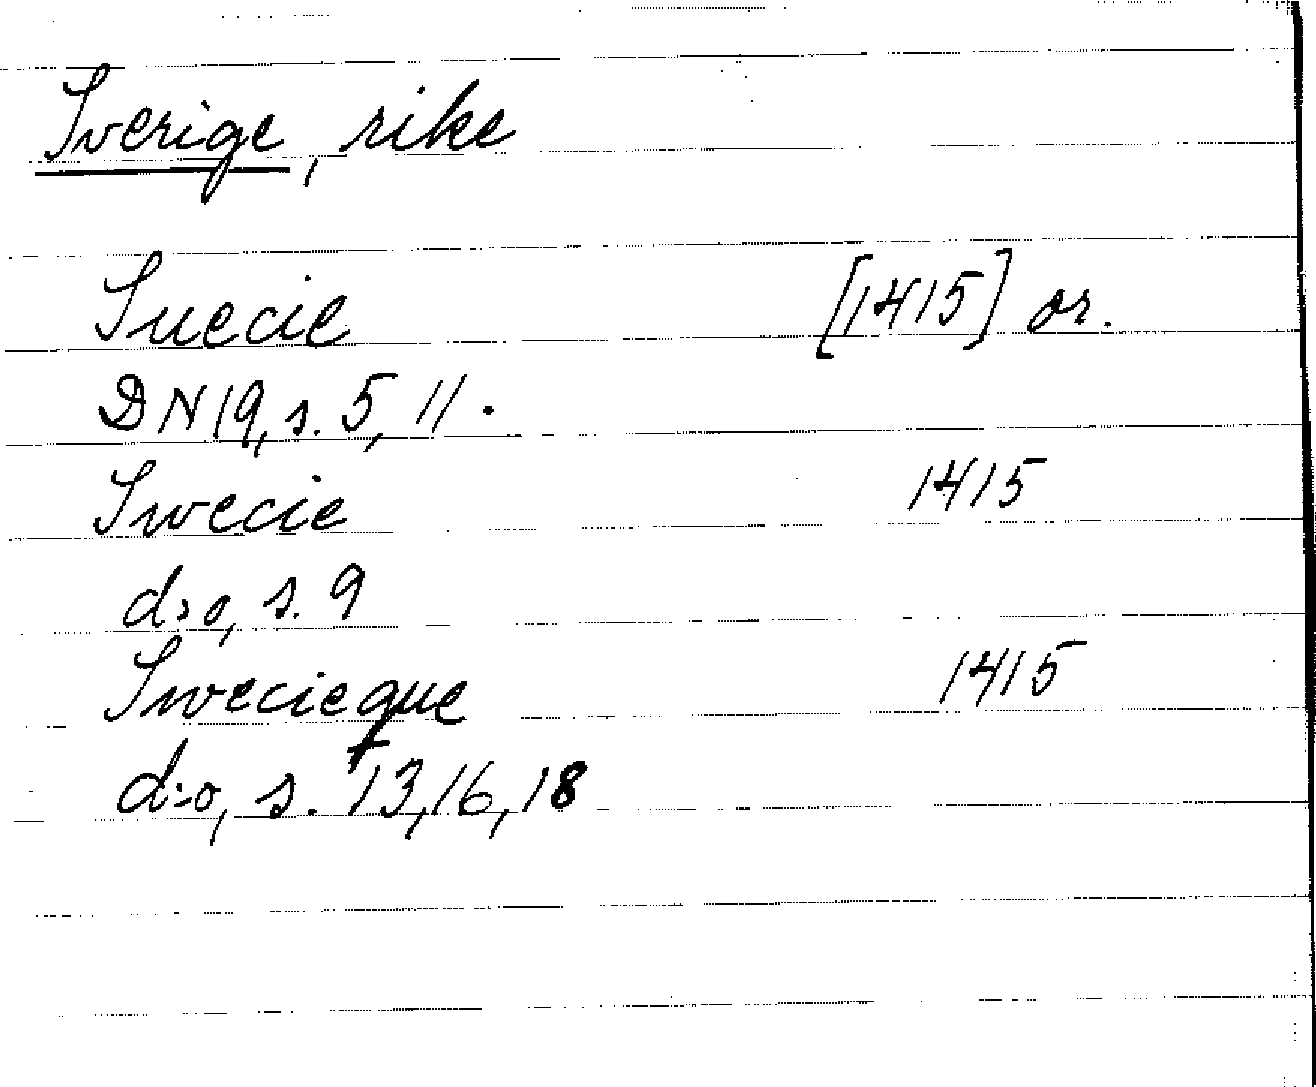 Sverige, rike
Suecie [1415] or.
DN 19, s. 5, 11.
Swecie 1415
d:o, s. 9
Swecieque 1415
d:o, s. 13, 16, 18